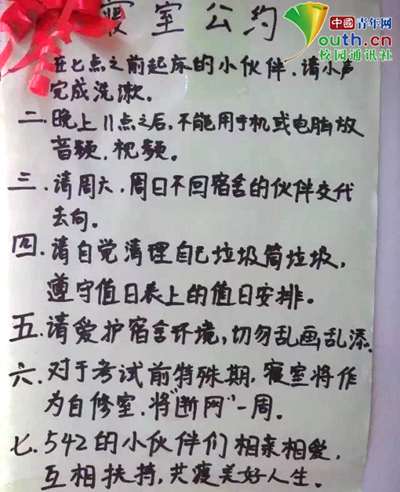 寝室公约
中國青年网
youth.cn
校园通讯社
在七点之前起床的小伙伴,请小声
完成洗漱。
二.晚上11点之后,不能用手机或电脑放
音频,视频。
三.请周六,周日不回宿舍的伙伴交代
去向。
四.请自觉清理自己垃圾筒垃圾,
遵守值日表上的值日安排。
五.请爱护宿舍环境,切勿乱画乱添.
六.对于考试前特殊期,寝室将作
为自修室,将"断网"一周。
七.542的小伙伴们相亲相爱,
互相扶持,共度美好人生。